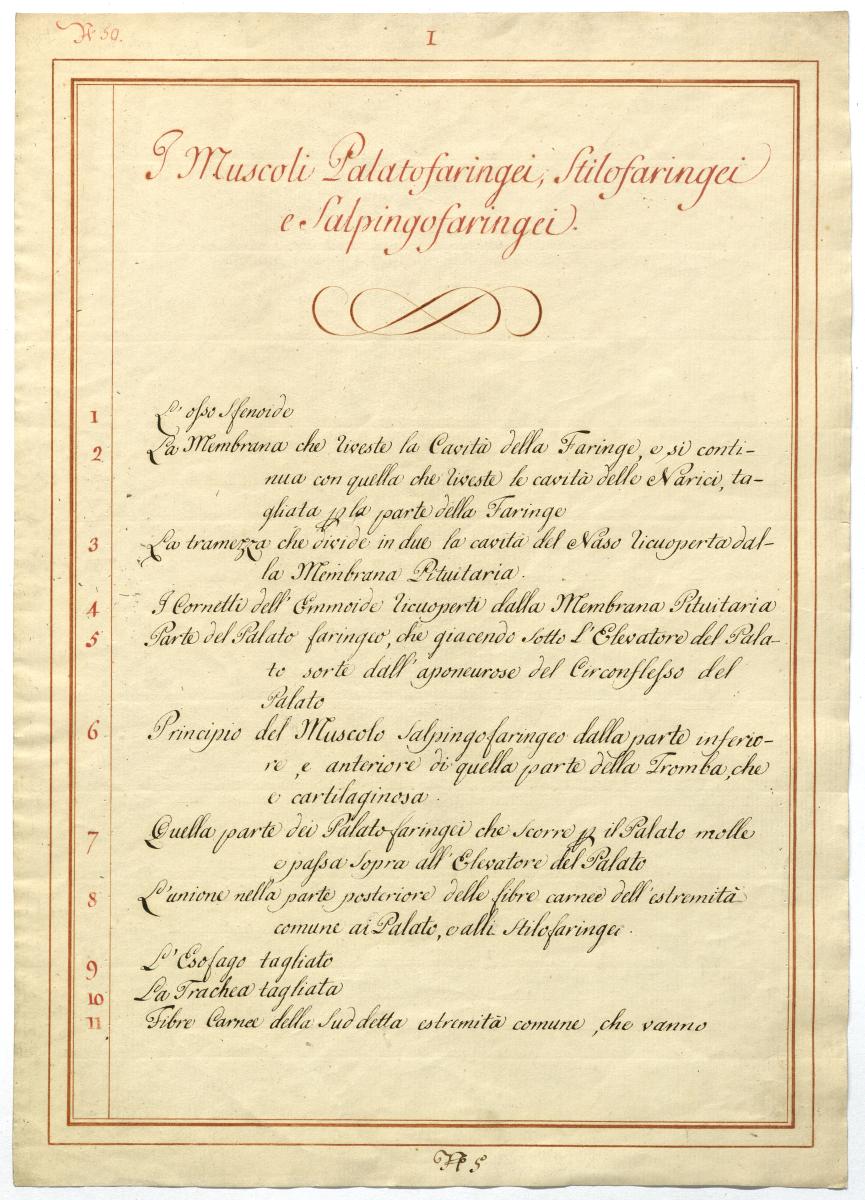 N 50.
I
I Muscoli Palatofaringei, Stilofaringei
e Salpingofaringei.
1 L'osso Sfenoide
2 La Membrana che riveste la Cavità della Faringe, e si conti-
nua con quella che riveste le cavità delle Narici, ta-
gliata p la parte della Faringe
3 La tramezza che divide in due la cavità del Naso ricuoperta dal-
la Membrana Pituitaria.
4 I Cornetti dell'Emmoide ricuoperti dalla Membrana Pituitaria
5 Parte del Palato faringeo, che giacendo sotto L'Elevatore del Pala-
to sorte dall'aponeurose del Circonflesso del
Palato
6 Principio del Muscolo Salpingofaringeo dalla parte inferio-
re, e anteriore di quella parte della Tromba, che
e cartilaginosa.
7 Quella parte dei Palatofaringei che scorre p il Palato molle
e passa sopra all'Elevatore del Palato
8 L'unione nella parte posteriore delle fibre carnee dell'estremità
comune ai Palato, e alli Stilofaringei.
9 L'Esofago tagliato
10 La Trachea tagliata
11 Fibre Carnee della Suddetta estremità comune, che vanno
N 5